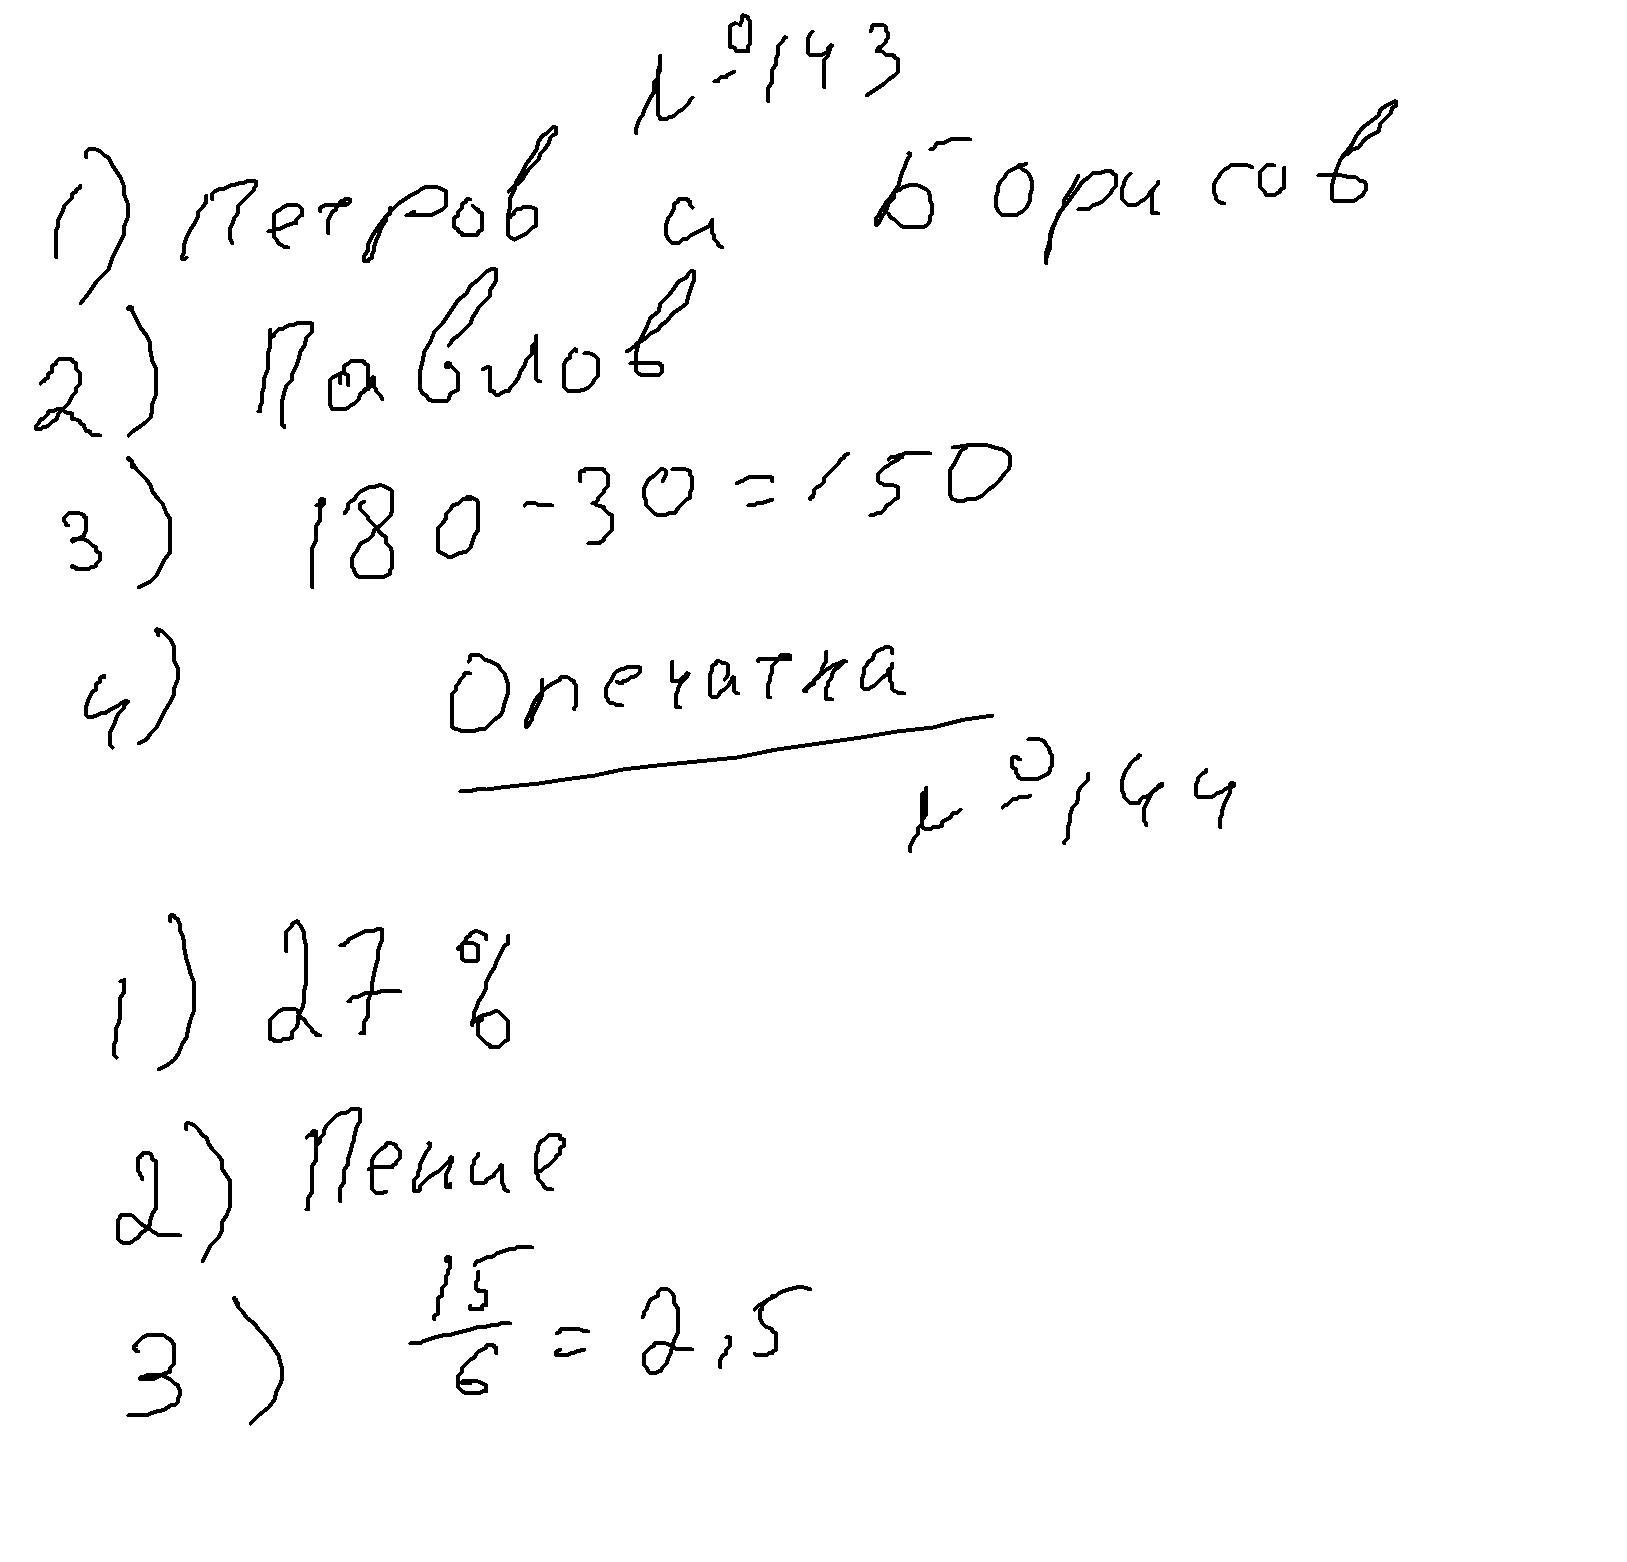 №143
1) Петров и Борисов
2) Павлов
3) 180 - 30 = 150
4) Опечатка
№144
1) 27 %
2) Пение
3) 15/6 = 2,5